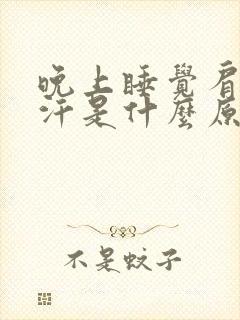 晚上睡覺肩
汗是什麼原
不是蚊子